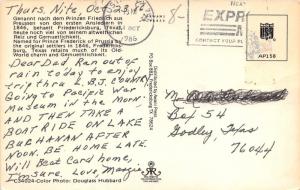 Thurs, Nite, Oct 23, 86
Genannt nach dem Prinzen Friedrich aus
Preussen von den ersten Ansiedlern in
1846, behaelt Fredericksburg, Texas,
heute noch viel von seiner altweltlichen
Bier und Gemuetlichkeit.
Named for Prince Frederick of Prussia by
the original settlers in 1846, Fredericksburg,
Texas retains much of its Old World charm
and Gemuetlichkeit.
Dear Dad Ran out of
rain today to enjoy
trip thru L.B.J. Country
Going to Pacific War
Museum in the morn.
AND THEN TAKE A
BOAT RIDE ON LAKE
BUCHANAN AFTER
NOON. BE HOME LATE.
Will Beat Card home,
I'm sure. Love, Margie
C34024-Color Photo: Douglass Hubbard
OCT
1986
EXPR
CONTACT YOUR
AP158
M
Box 54
Godley, Texas
76044